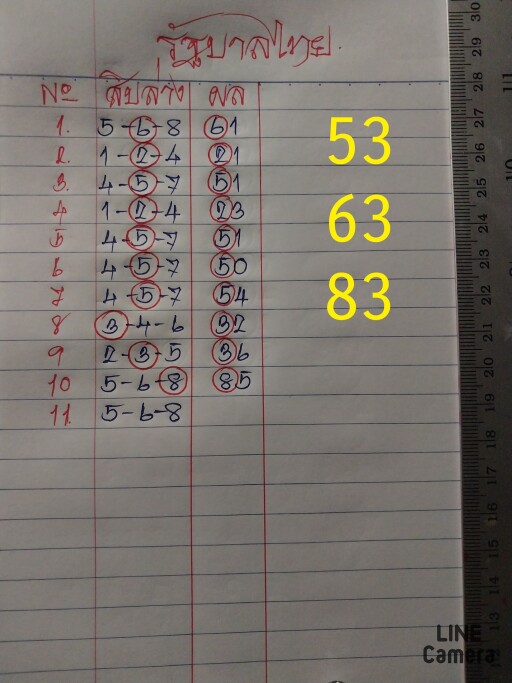 รัฐบาลไทย.
Nº สิบล่าง ผล
1. 5-6-8 61
2. 1-2-4 21
3. 4-5-7 51
4 1-2-4 23
5 4-5-7 51
6 4-5-7 50
7 4-5-7 54
8 3-4-6 32
9 2-3-5 36
10 5-6-8 85
11. 5-6-8
53
63
83
30
29
28
27
26
25
24
23
22
21
20
19
18
17
16
15
14
13
12
LINE
Camera